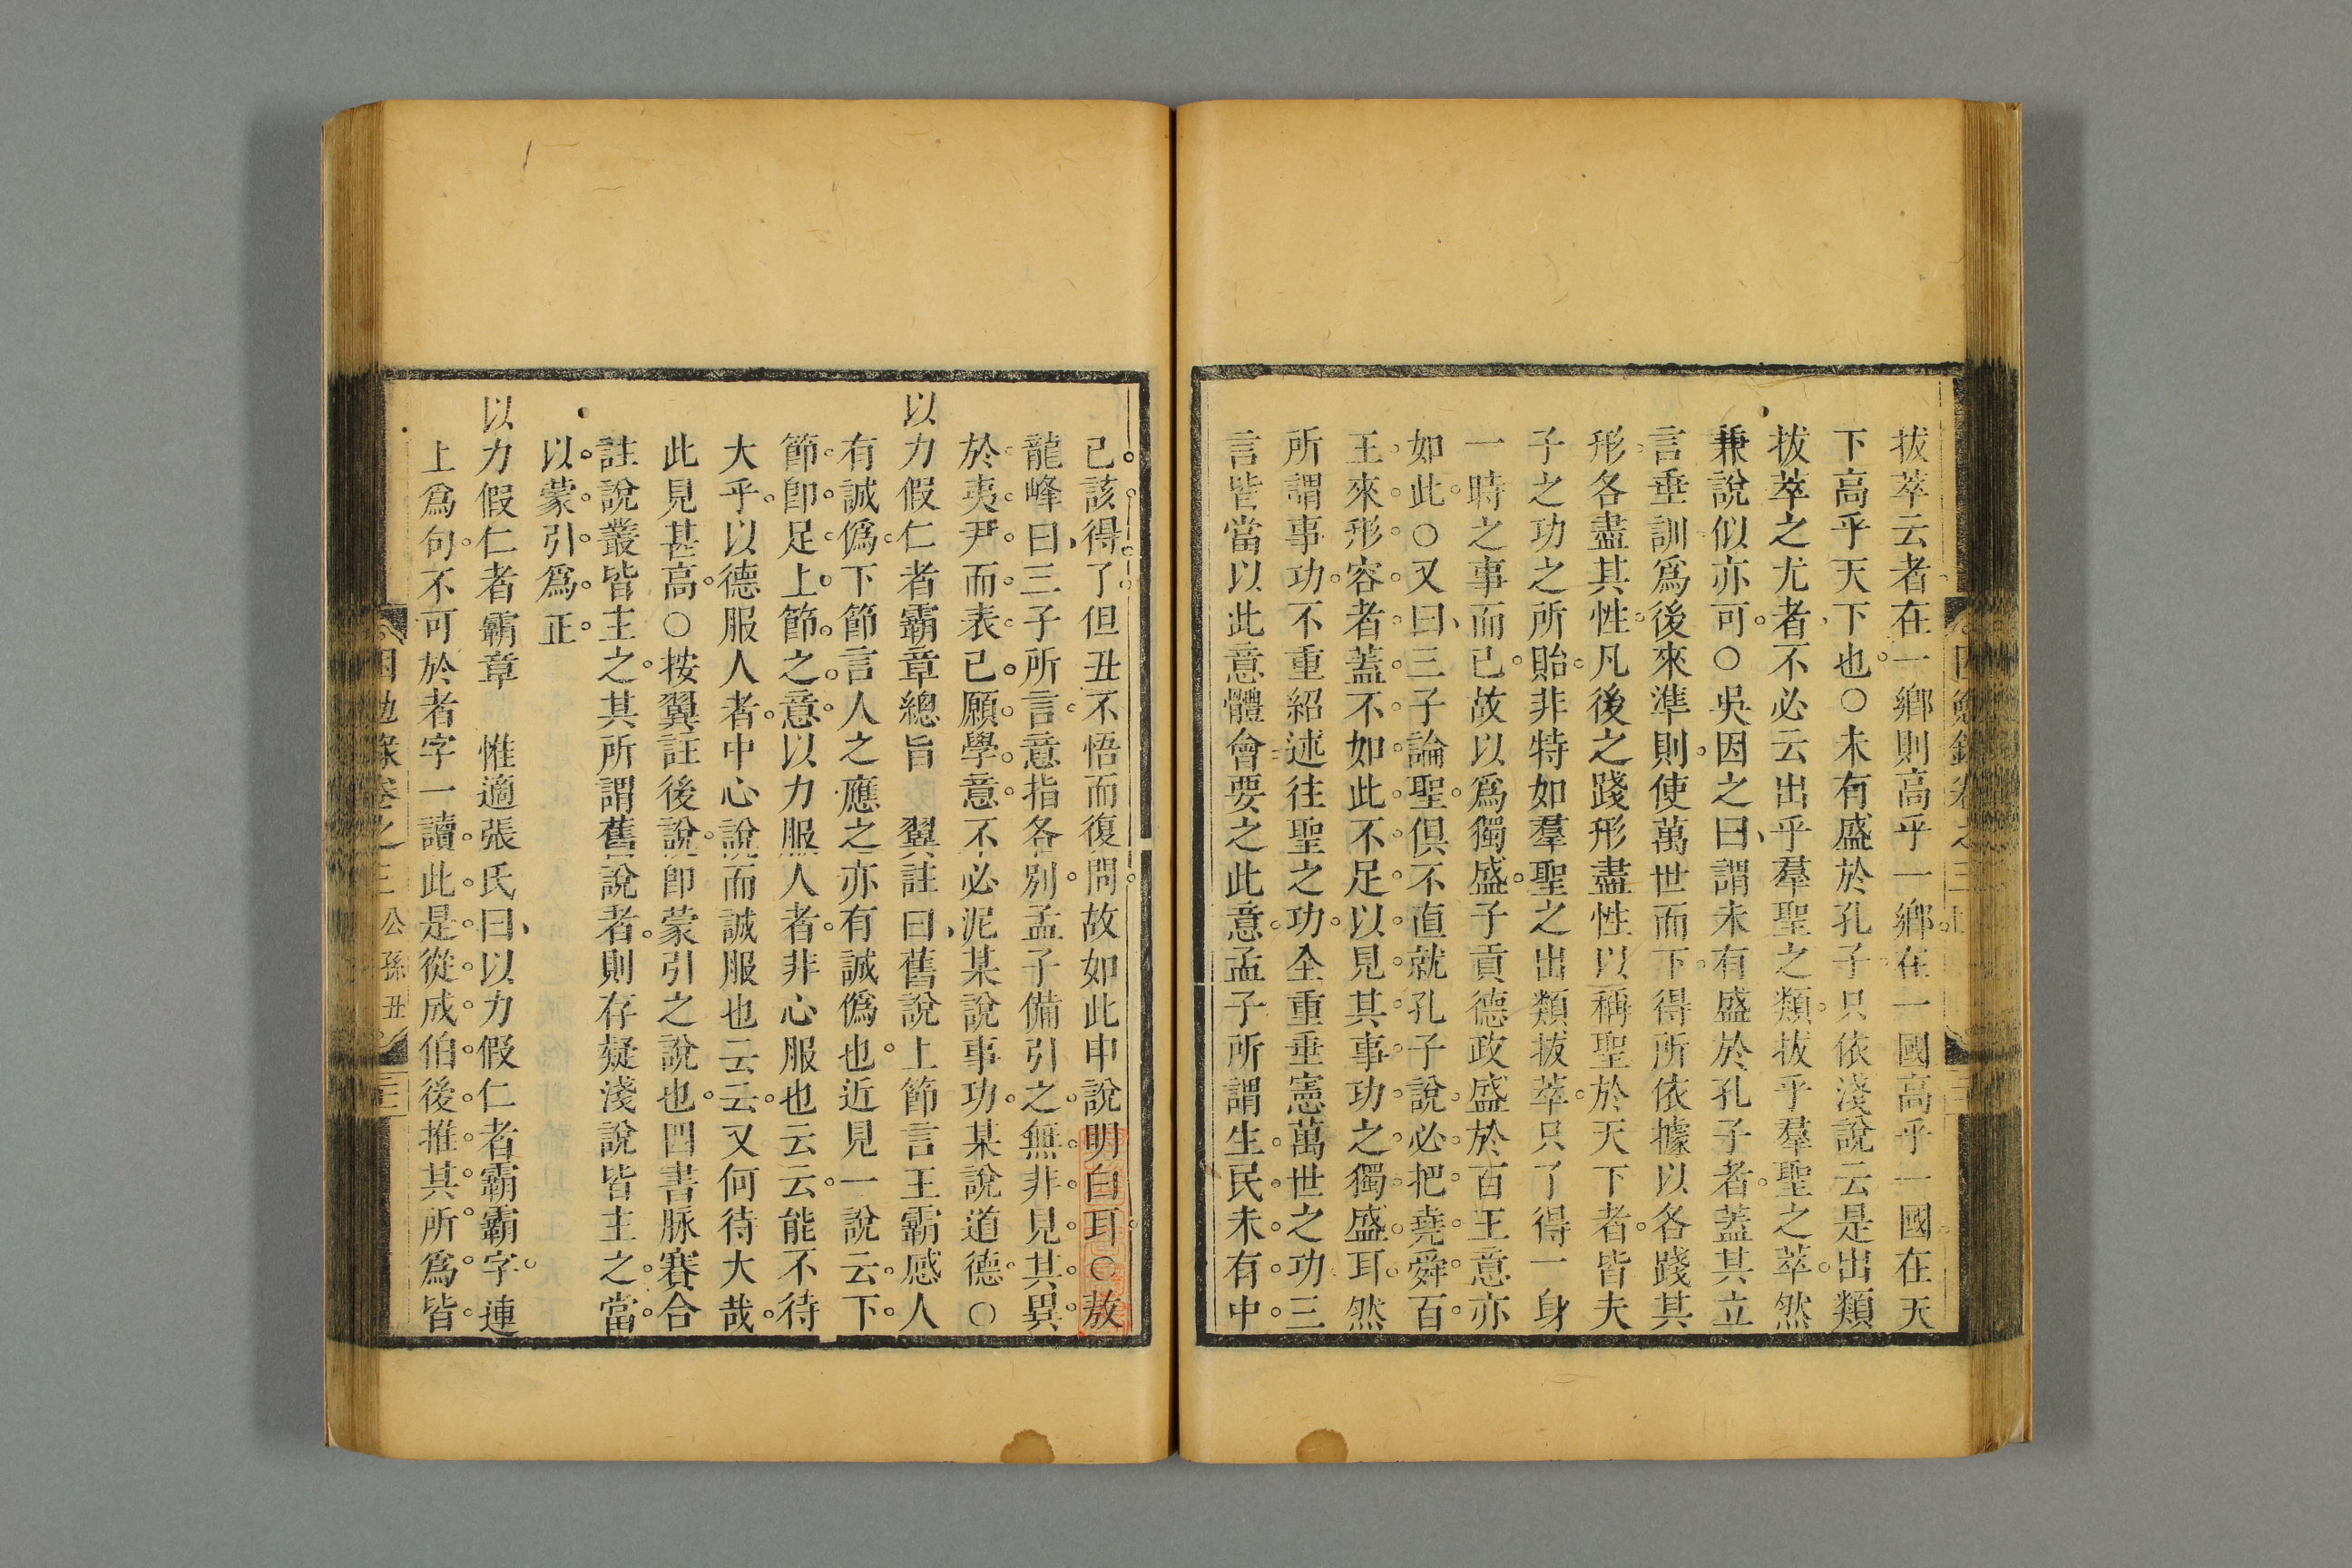 拔萃云者在一鄉則高乎一鄉在一國高乎一國在天
下高乎天下也○未有盛於孔子只依淺說云是出類
拔萃之尤者不必云出乎羣聖之類拔乎羣聖之萃然
兼說似亦可○吳因之曰謂未有盛於孔子者蓋其立
言垂訓爲後來準則使萬世而下得所依據以各踐其
形各盡其性凡後之踐形盡性以稱聖於天下者皆夫
子之功之所貽非特如羣聖之出類拔萃只了得一身
一時之事而已故以爲獨盛子貢德政盛於百王意亦
如此○又曰三子論聖俱不直就孔子說必把堯舜百
王來形容者蓋不如此不足以見其事功之獨盛耳然
所謂事功不重紹述往聖之功全重垂憲萬世之功三
言皆當以此意體會要之此意孟子所謂生民未有中
已該得了但丑不悟而復問故如此申說明白耳○敖
龍峰曰三子所言意指各別孟子備引之無非見其異
於夷尹而表己願學意不必泥某說事功某說道德○
以力假仁者霸章總旨 翼註曰舊說上節言王霸感人
有誠僞下節言人之應之亦有誠僞也近見一說云下
節卽足上節之意以力服人者非心服也云云能不待
大乎以德服人者中心說而誠服也云云又何待大哉
此見甚高○按翼註後說卽蒙引之說也四書脉賽合
註說叢皆主之其所謂舊說者則存疑淺說皆主之當
以蒙引爲正
以力假仁者霸章 惟適張氏曰以力假仁者霸霸字連
上爲句不可於者字一讀此是從成伯後推其所爲皆
困勉錄卷之三 公孫丑